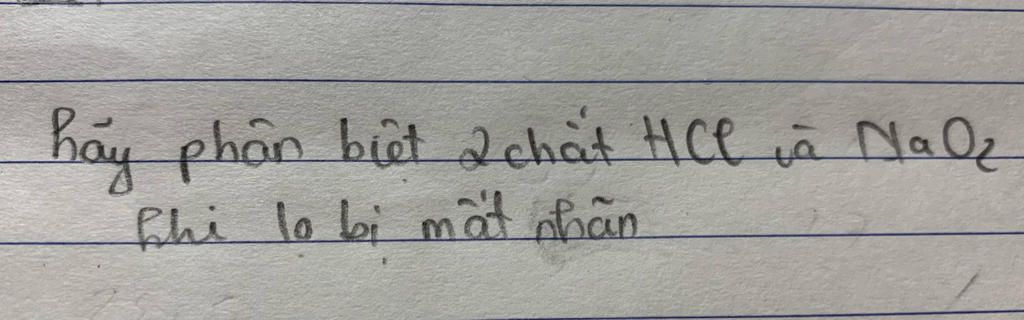 hãy phân biệt 2 chất HCl và NaO2
khi lo bị mất nhãn